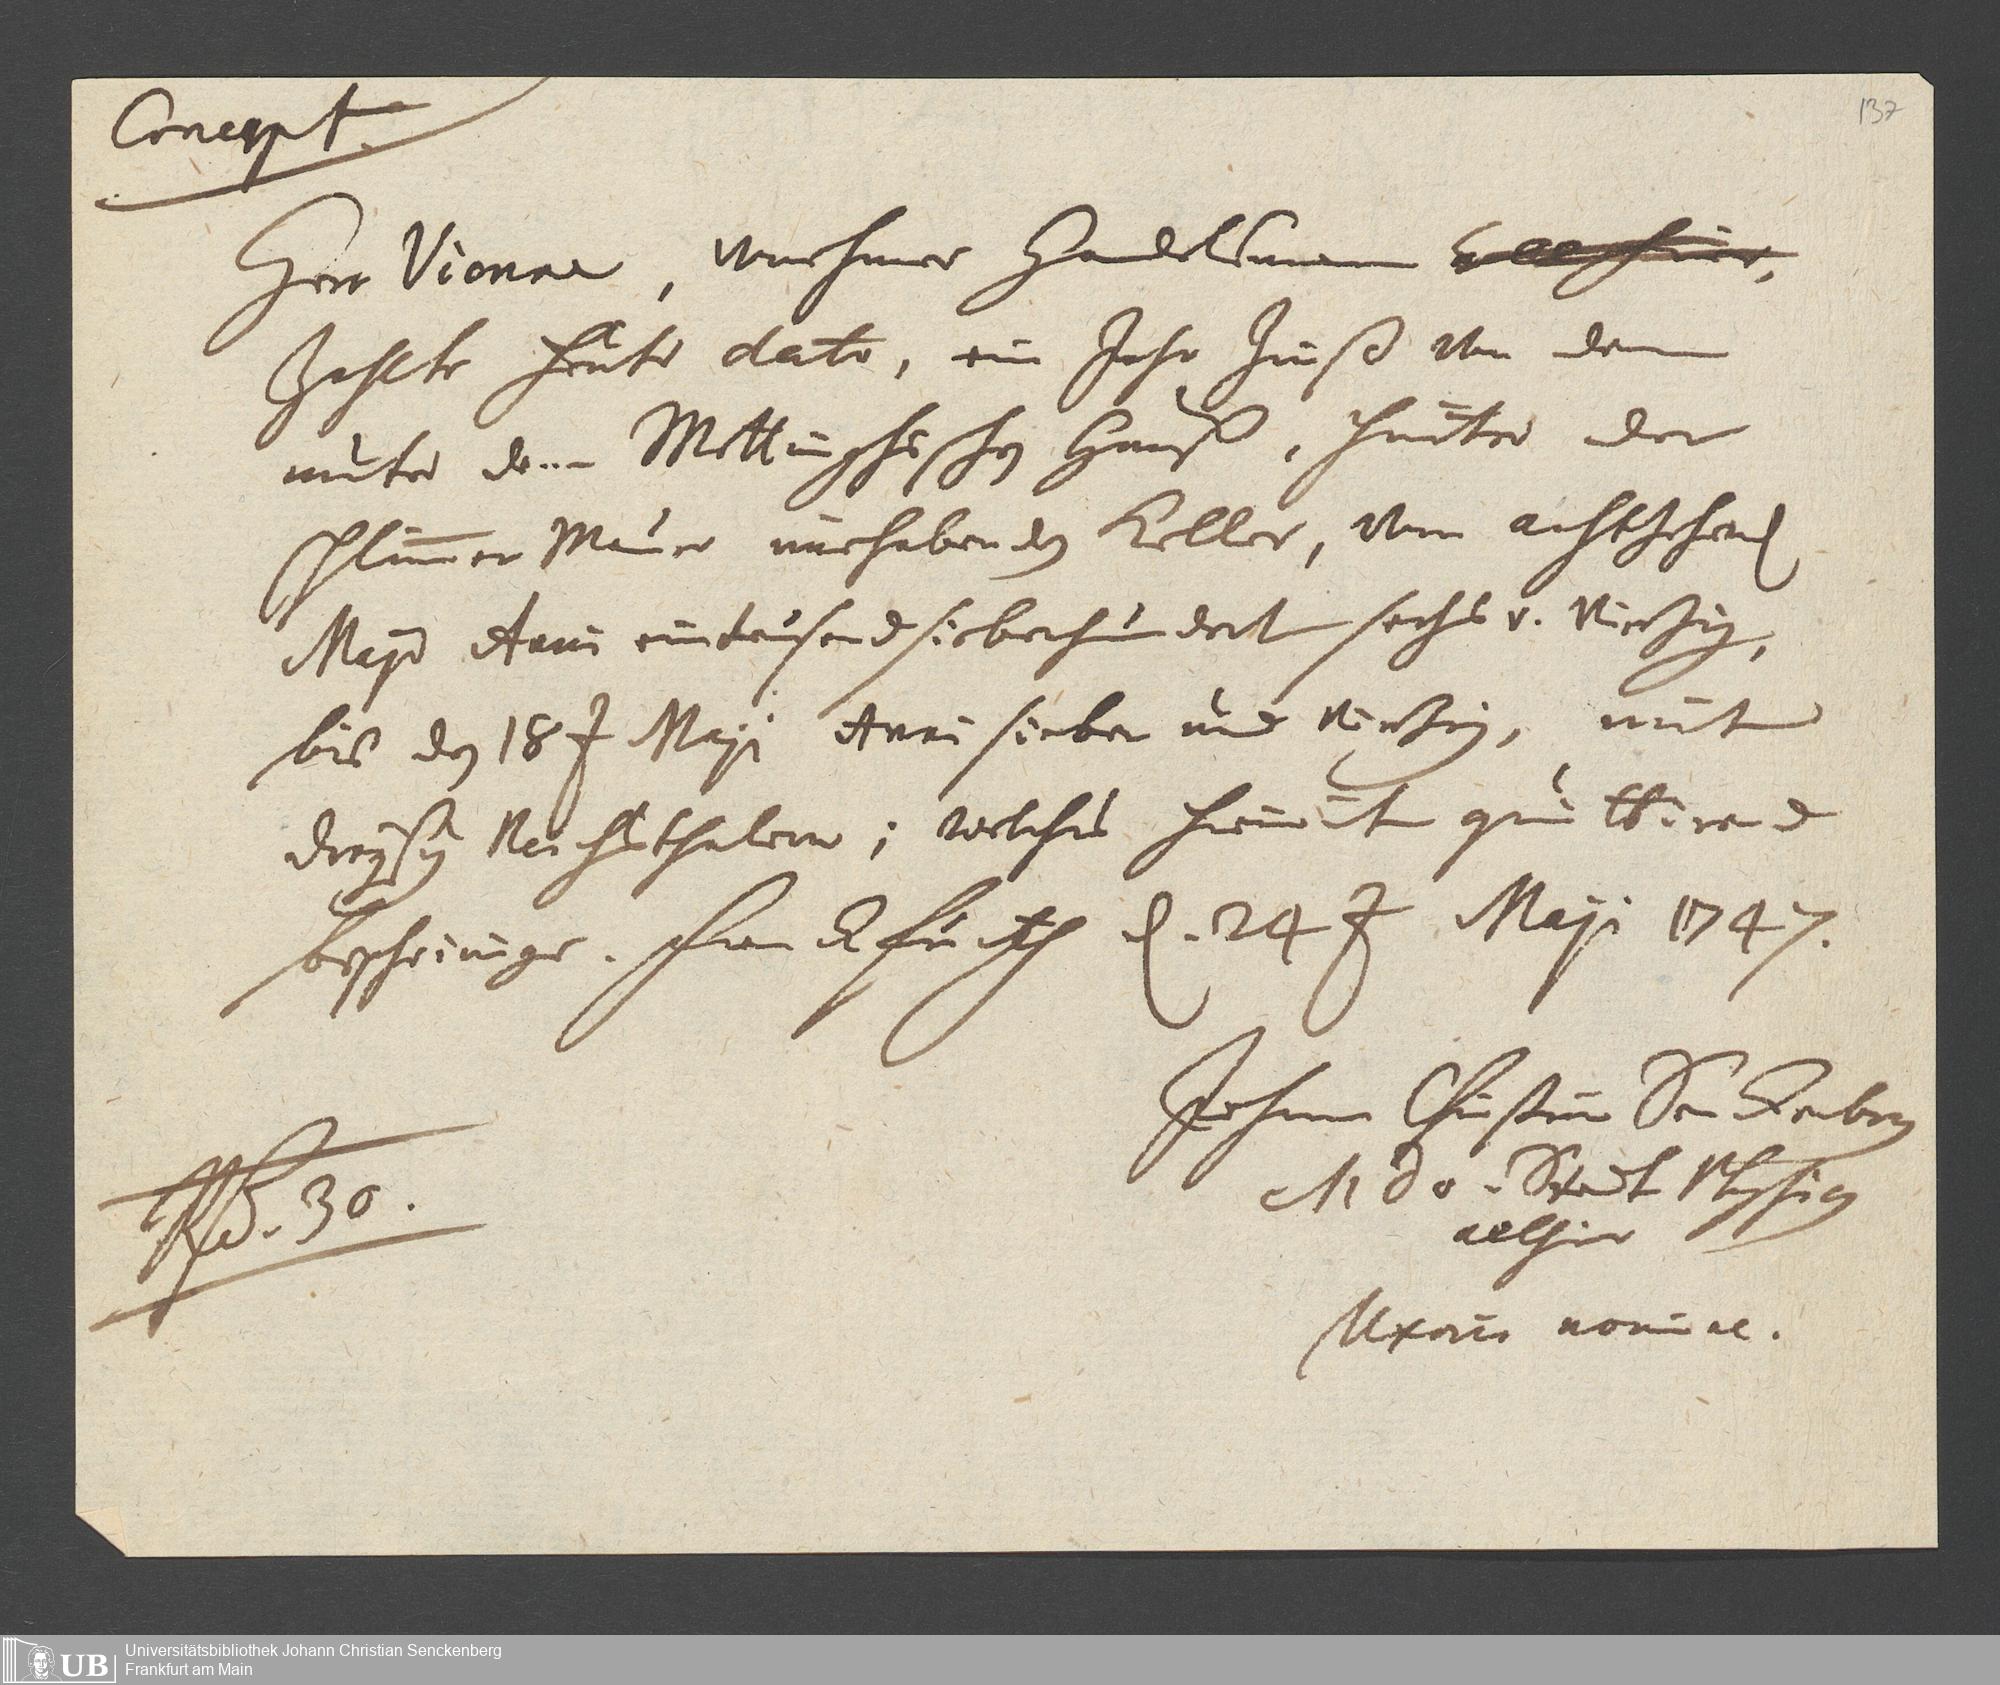 Concept.
137
Herr Vionne, vornehmer Handelsmann
Zahlte heute dato, ein Jahr Zinß von dem
unter dem Mettinghischen Hauß, hinter der
schlimmen Mauer innhabenden Keller, vom achtzehend
Maji Anni eintausendsiebenhundert sechs v. Viertzig,
bis den 18t Maji Anni sieben und viertzig, mit
dreysig Reichsthalern; welches hiemit quittirend
bescheinige. Franckfurth d. 24t Maji 1747.
Johann Christian Senckenberg
M Do. Stadt Physicus
allhier
Uxoris nomine.
30.
UB
Universitätsbibliothek Johann Christian Senckenberg
Frankfurt am Main